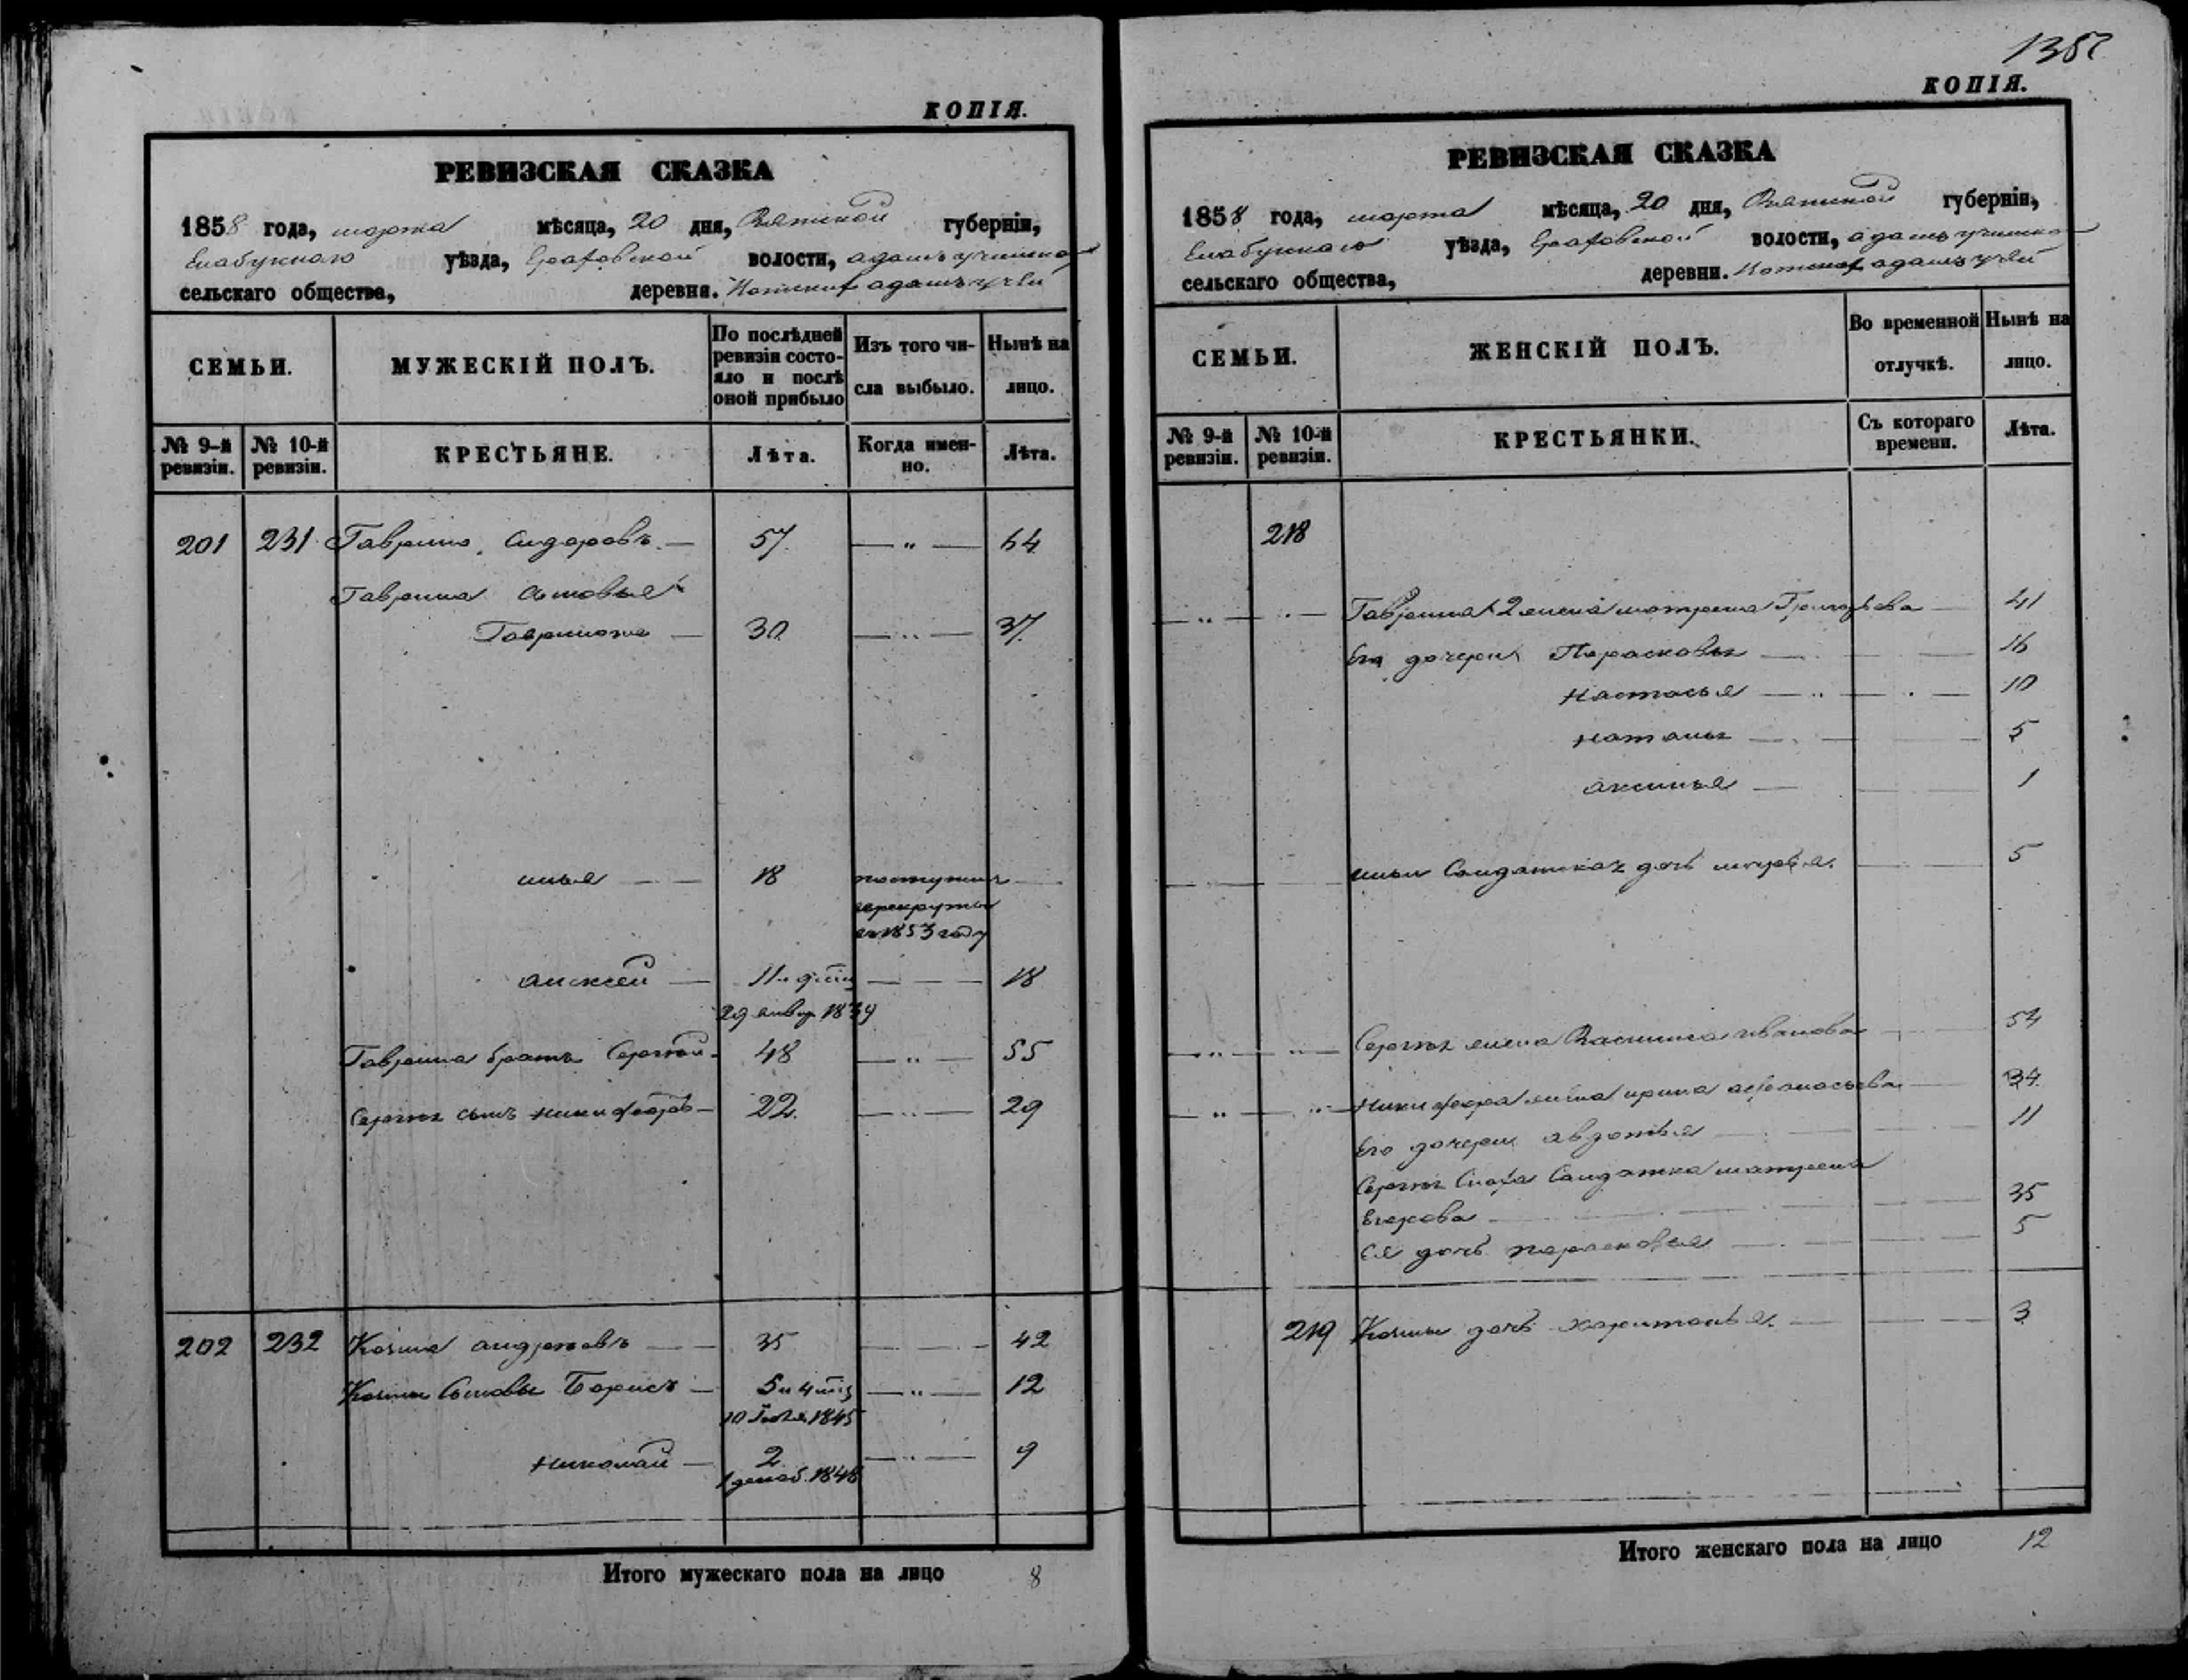 КОПІЯ.
РЕВИЗСКАЯ СКАЗКА
1858 года, марта мѣсяца, 20 дня, Вятской губерніи,
Елабужскаго уѣзда, Граховской волости,
сельскаго общества, деревни.
СЕМЬИ.
МУЖЕСКІЙ ПОЛЪ.
По послѣдней ревизіи состо-
яло и послѣ оной прибыло
Изъ того чи-
сла выбыло.
Нынѣ на
лицо.
№ 9-й ревизіи.
№ 10-й ревизіи.
КРЕСТЬЯНЕ.
Лѣта.
Когда имен-
но.
Лѣта.
201 231 Гаврило Сидоровъ 57 — " — 64
Гаврила сыновья
Гаврило 30 — " — 37
Илья 18 поступилъ
врекруты
въ 1853 году
Алексей 11 18
29 январ 1839
Гаврила братъ Сергей 48 — " — 55
Сергея сынъ Никифоръ 22 — " — 29
202 232 Козма Андреевъ 35 42
Козмы Сыновья Борисъ 5 и 4 — " — 12
10 1845
Николай 2 — " — 9
1 декаб. 1848
Итого мужескаго пола на лицо 8
КОПІЯ.
РЕВИЗСКАЯ СКАЗКА
1858 года, марта мѣсяца, 20 дня, Вятской губерніи,
Елабужскаго уѣзда, Граховской волости,
сельскаго общества, деревни.
СЕМЬИ.
ЖЕНСКІЙ ПОЛЪ.
Во временной
отлучкѣ.
Нынѣ на
лицо.
№ 9-й ревизіи.
№ 10-й ревизіи.
КРЕСТЬЯНКИ.
Съ котораго
времени.
Лѣта.
218
Гаврила 2 жена Матрена Григорьева 41
Его дочери Парасковья 16
Настасья 10
Наталья 5
Аксинья 1
Ильи Солдатская дочь 5
Сергея жена Василиса Иванова 54
Никифора жена Ирина Афонасьева 34
Его дочери Авдотья 11
Сергея Сноха Солдатка Матрена
Егорова 35
Ея дочь Парасковья 5
219 Козмы дочь Харитонья 3
Итого женскаго пола на лицо 12